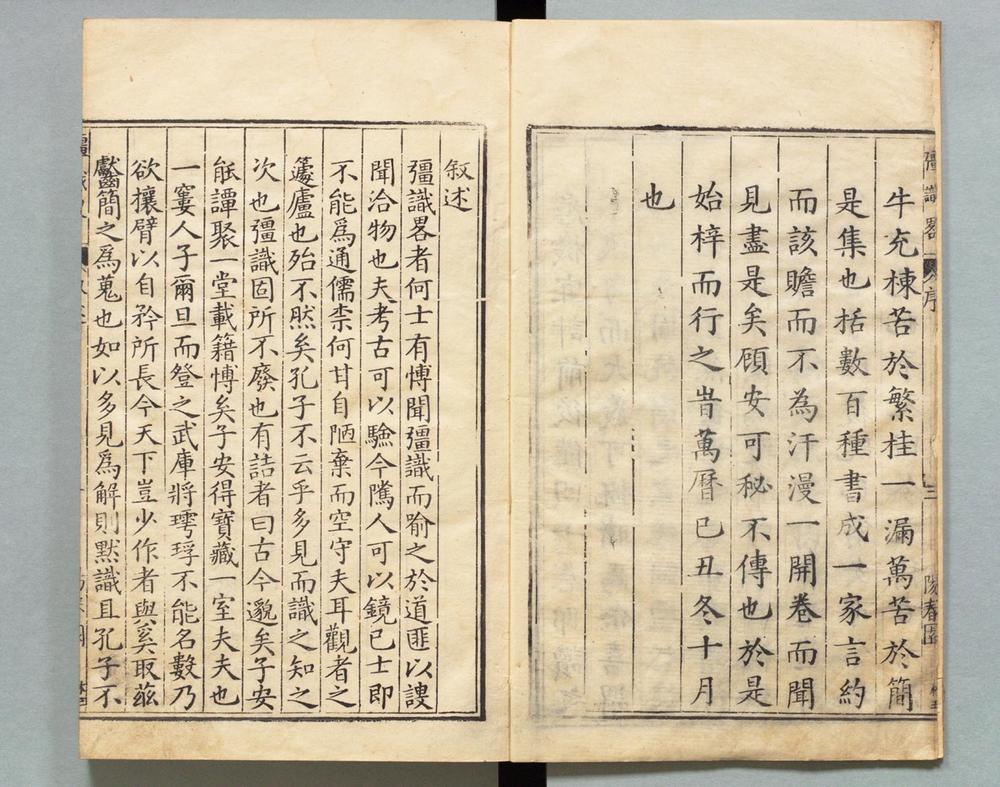 彊識畧 序 三 陽春園
牛充棟苦於繁桂一漏萬苦於簡
是集也括數百種書成一家言約
而該贍而不為汗漫一開卷而聞
見盡是矣顧安可秘不傳也於是
始梓而行之旹萬曆己丑冬十月
也
叙述
彊識畧者何士有愽聞彊識而喻之於道匪以謏
聞洽物也夫考古可以驗今隲人可以鏡已士即
不能爲通儒柰何甘自陋棄而空守夫耳觀者之
籧廬也殆不然矣孔子不云乎多見而識之知之
次也彊識固所不廢也有詰者曰古今邈矣子安
能譚聚一堂載籍愽矣子安得寶藏一室夫夫也
一窶人子爾旦而登之武庫將璕琈不能名數乃
欲攘臂以自矜所長今天下豈少作者與奚取茲
齒簡之爲蒐也如以多見爲解則默識且孔子不